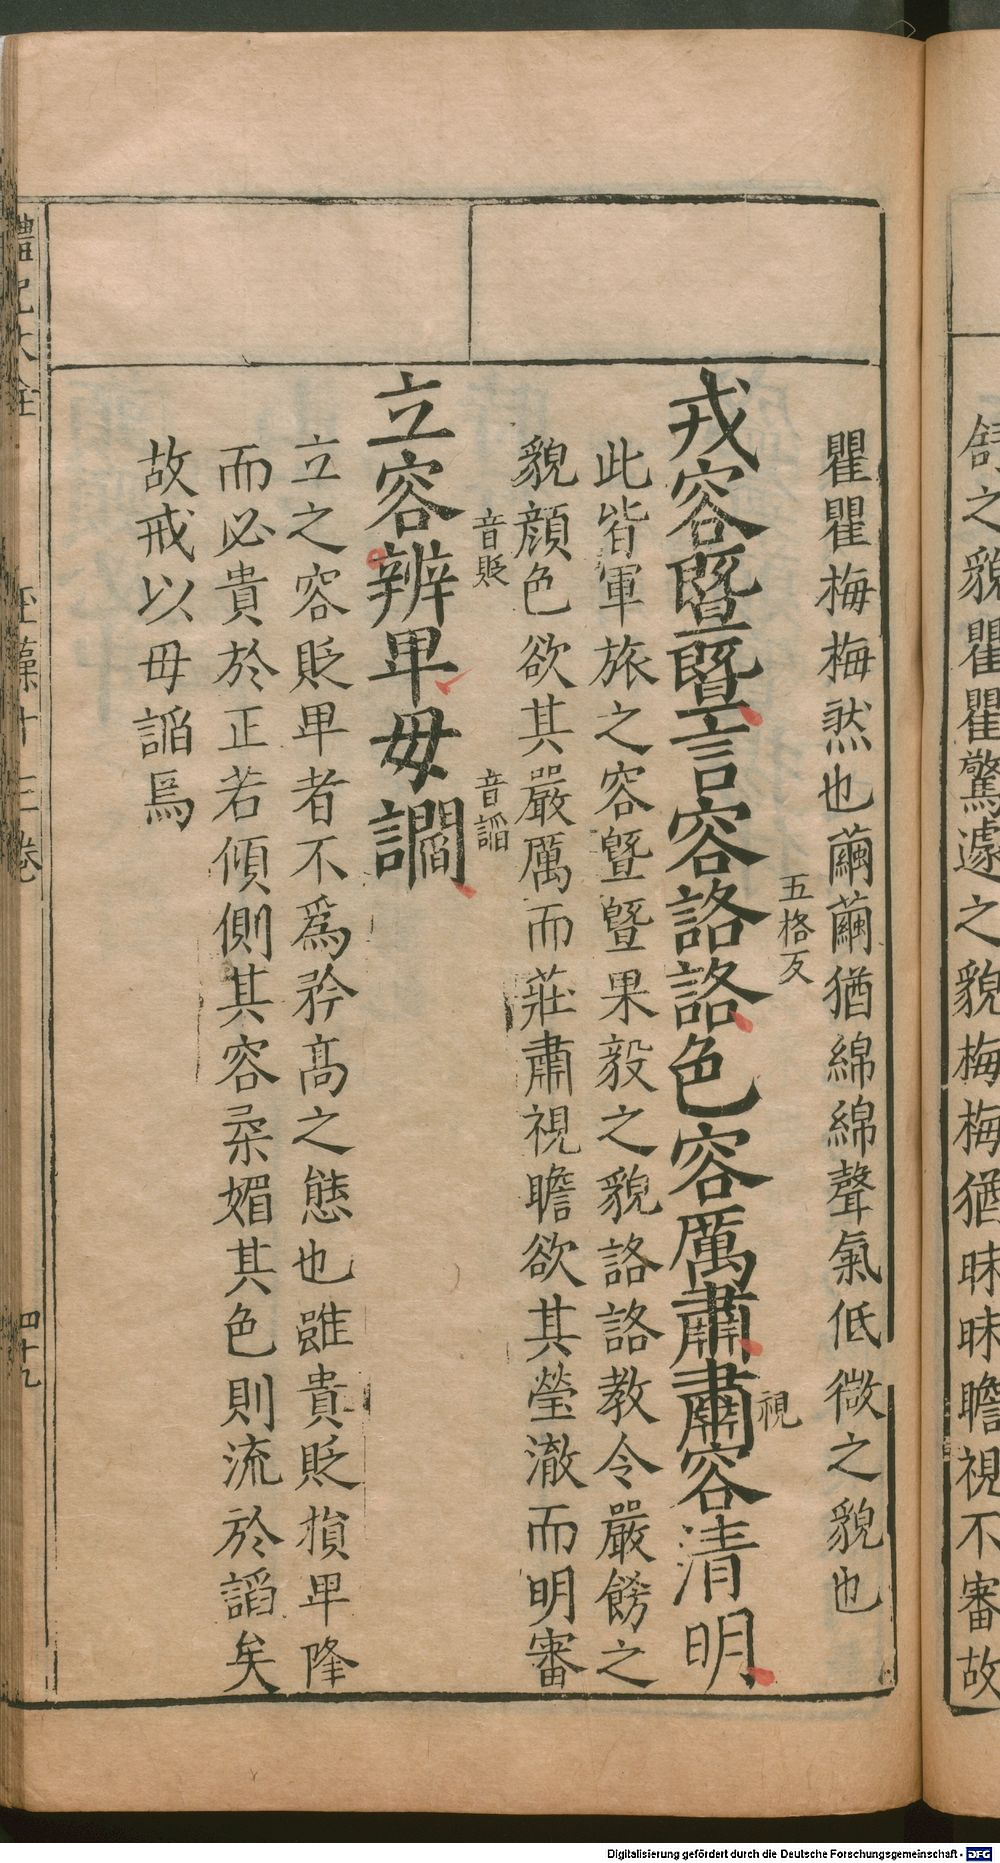 舒之貌瞿瞿驚遽之貌梅梅猶昧昧瞻視不審故
瞿瞿梅梅然也繭繭猶綿綿聲氣低微之貌也
戎容曁曁言容詻詻色容厲肅肅容清明
五格反
視
此皆軍旅之容曁曁果毅之貌詻詻教令嚴餝之
貌顔色欲其嚴厲而莊肅視瞻欲其瑩澈而明審
立容辨𤰞毋讇
音貶
音謟
立之容貶𤰞者不爲矜髙之態也雖貴貶損𤰞隆
而必貴於正若傾側其容柔媚其色則流於謟矣
故戒以毋謟焉
禮記大全
玉藻十三卷
四十九
Digitalisierung gefördert durch die Deutsche Forschungsgemeinschaft - DFG